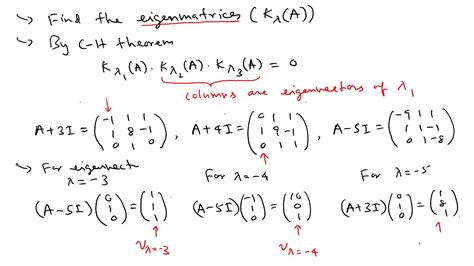 ↳ Find the eigenmatrices (Kλ(A))
↳ By C-H theorem
Kλ₁(A) · Kλ₂(A) · Kλ₃(A) = 0
columns are eigenvectors of λ₁
A+3I = (-1 1 1 / 1 8 -1 / 0 1 0), A+4I = (0 1 1 / 1 9 -1 / 0 1 1), A-5I = (-9 1 1 / 1 0 -1 / 0 1 -8)
↳ For eigenvect λ=-3
For λ=-4
For λ=-5
(A-5I)(0 / 1 / 0) = (1 / 1 / 1)
(A-5I)(-1 / 1 / 0) = (10 / 1 / 1)
(A+3I)(0 / 1 / 0) = (1 / 8 / 1)
vλ=-3
vλ=-4